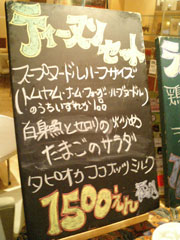 ディーヌンセット
スープヌードルハーフサイズ
(トムヤム・ナム・フォガ・ルーウヌードル
のうちいずれか1つ。)
白身魚とセロリの炒め
たまごのサラダ
タピオカココナッツミルク
1500えん
鶏